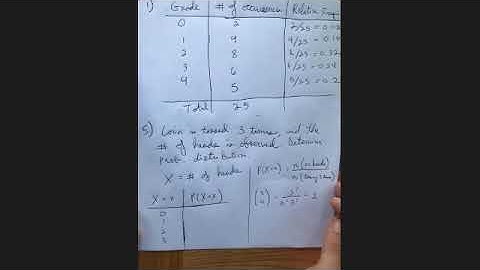 1) Grade # of occurrences Relative Freq
0 2 2/25 = 0.0
1 4 4/25 = 0.1
2 8 8/25 = 0.32
3 6 6/25 = 0.24
4 5 5/25 = 0.2
Total 25
5) Coin is tossed 3 times and the
# of heads is observed. Determine
prob. distribution.
X = # of heads P(X=x) =
X = x P(X=x)
0
1
2
3